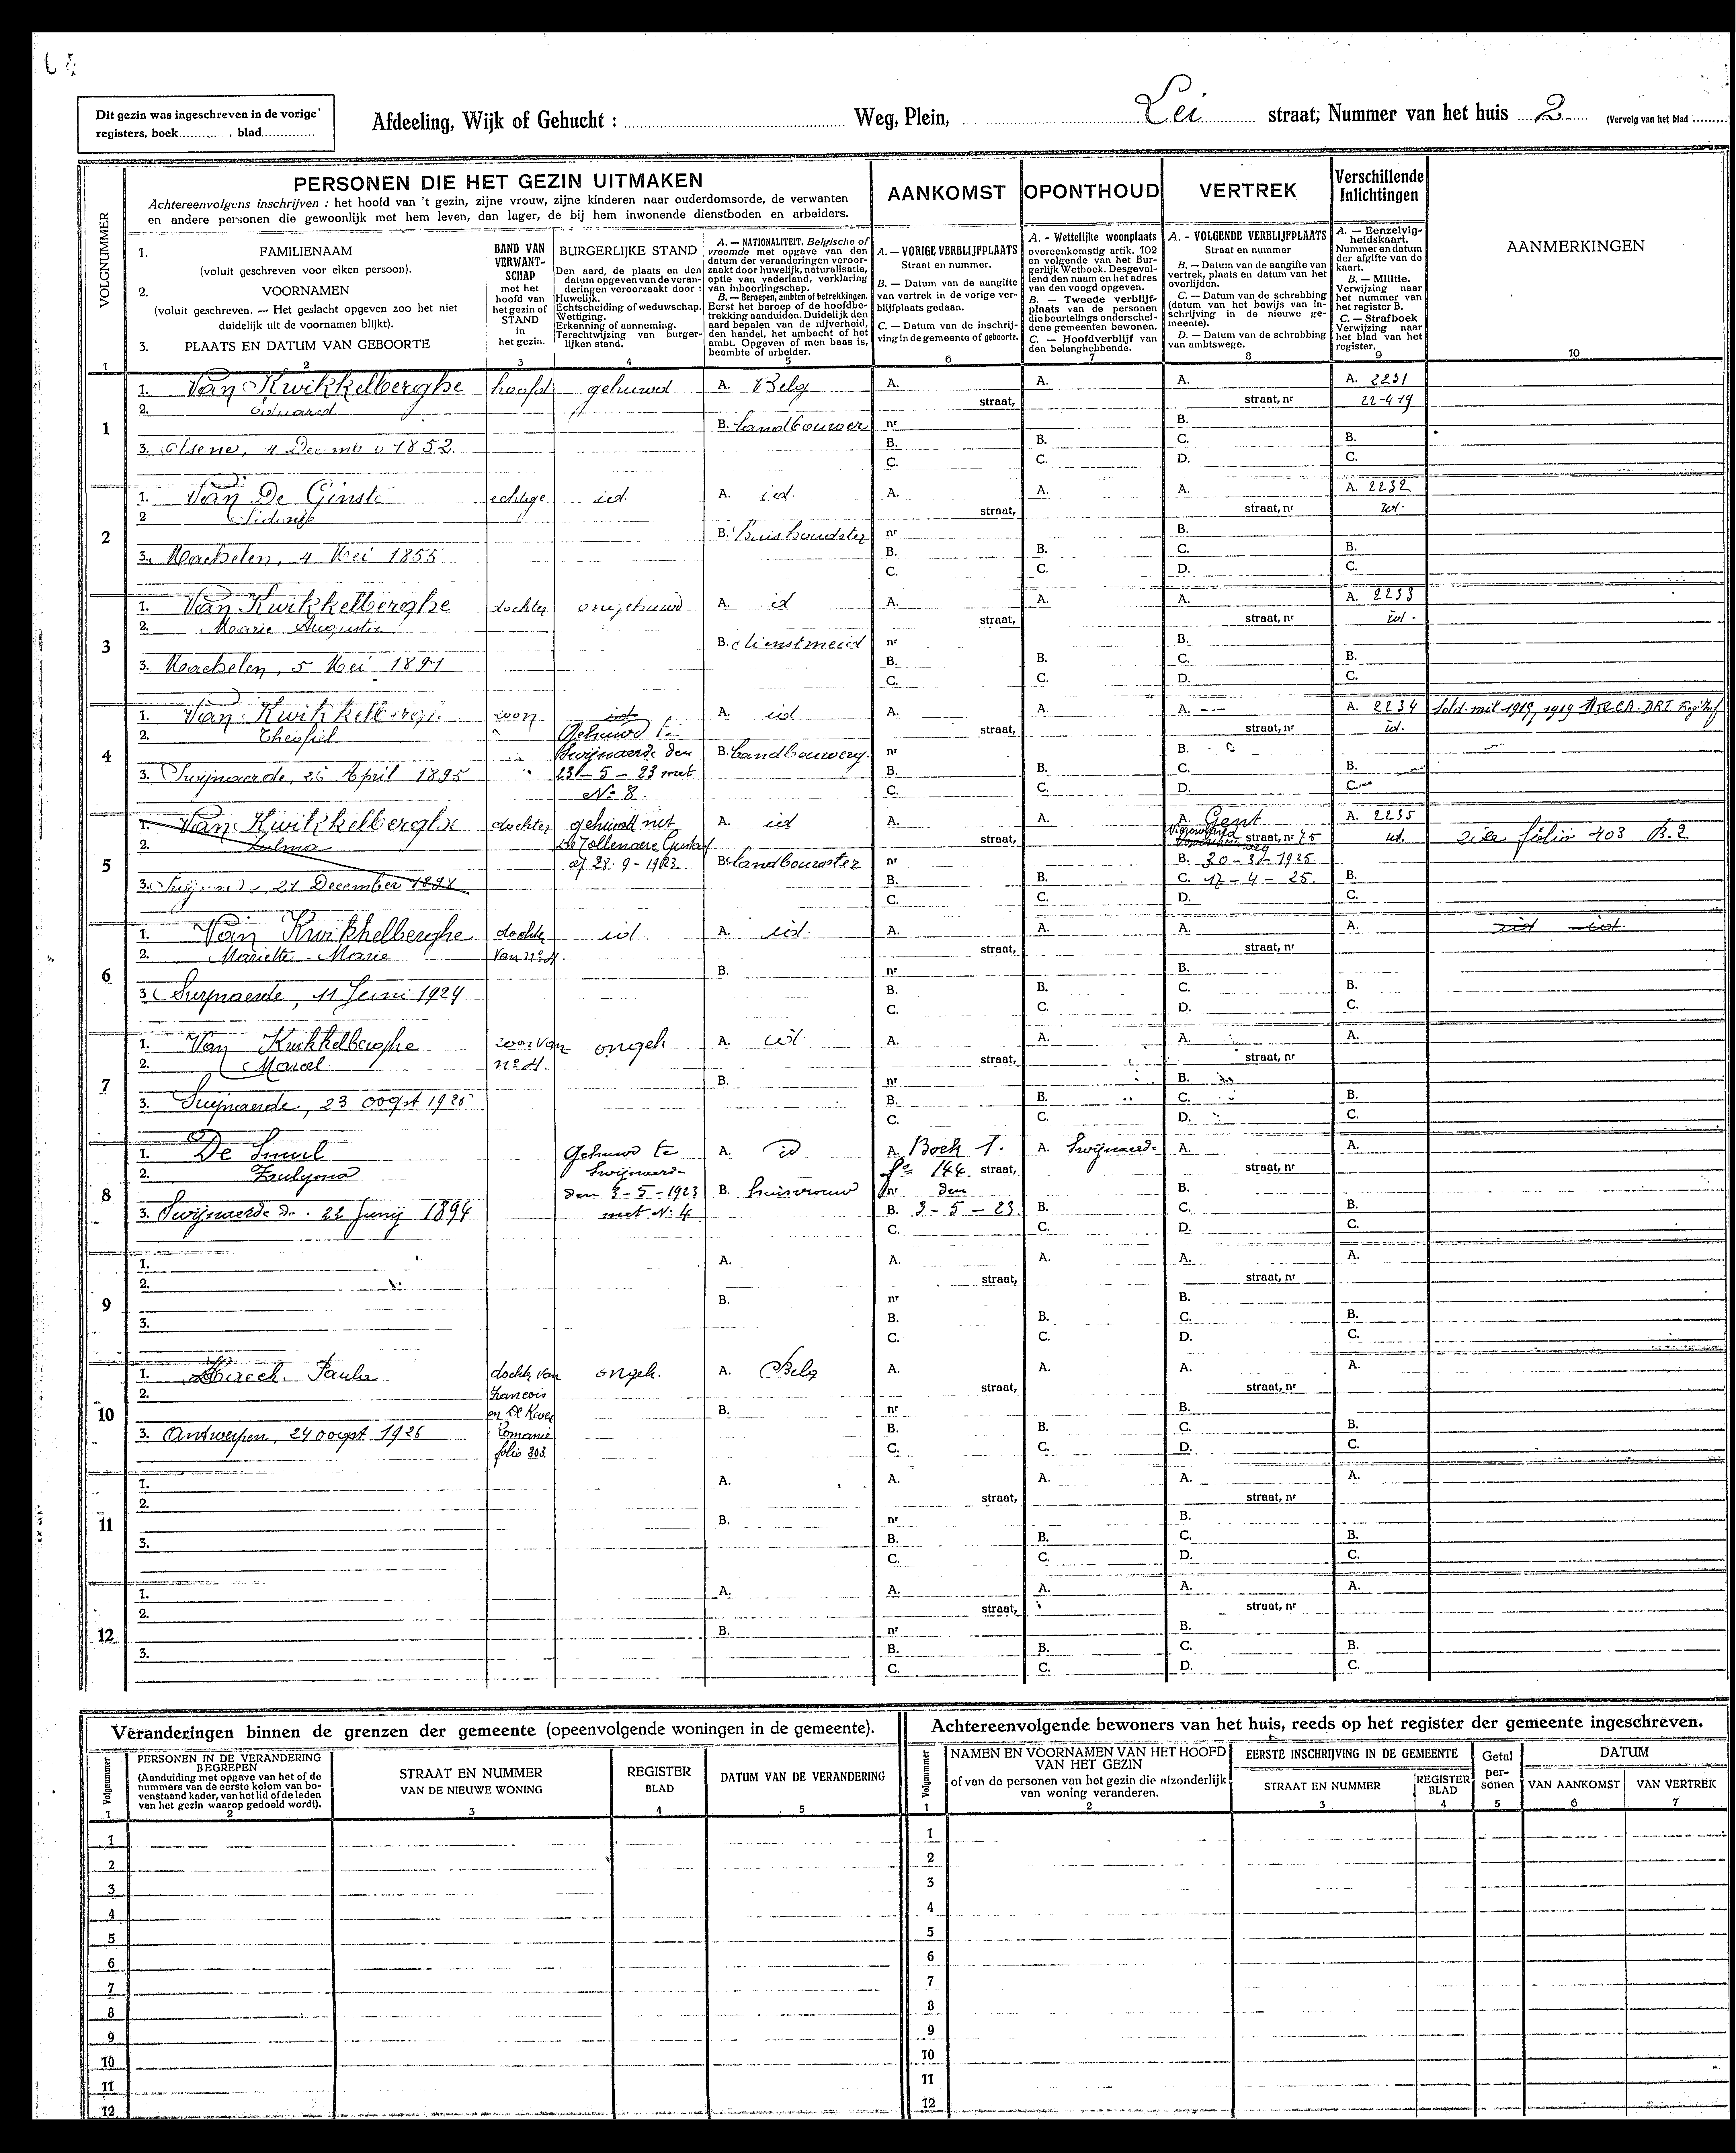 Dit gezin was ingeschreven in de vorige
registers, boek , blad
Afdeeling, Wijk of Gehucht : Weg, Plein, Lei straat; Nummer van het huis 2 (Vervolg van het blad
VOLGNUMMER
PERSONEN DIE HET GEZIN UITMAKEN
Achtereenvolgens inschrijven : het hoofd van 't gezin, zijne vrouw, zijne kinderen naar ouderdomsorde, de verwanten
en andere personen die gewoonlijk met hem leven, dan lager, de bij hem inwonende dienstboden en arbeiders.
1. FAMILIENAAM
(voluit geschreven voor elken persoon).
2. VOORNAMEN
(voluit geschreven. — Het geslacht opgeven zoo het niet
duidelijk uit de voornamen blijkt).
3. PLAATS EN DATUM VAN GEBOORTE
BAND VAN
VERWANT-
SCHAP
met het
hoofd van
het gezin of
STAND
in
het gezin.
BURGERLIJKE STAND
Den aard, de plaats en den
datum opgeven van de veran-
deringen veroorzaakt door :
Huwelijk.
Echtscheiding of weduwschap.
Wettiging.
Erkenning of aanneming.
Terechtwijzing van burger-
lijken stand.
A. — NATIONALITEIT. Belgische of
vreemde met opgave van den
datum der veranderingen veroor-
zaakt door huwelijk, naturalisatie,
optie van vaderland, verklaring
van inboorlingschap.
B. — Beroepen, ambten of betrekkingen.
Eerst het beroep of de hoofdbe-
trekking aanduiden. Duidelijk den
aard bepalen van de nijverheid,
den handel, het ambacht of het
ambt. Opgeven of men baas is,
beambte of arbeider.
AANKOMST
A. — VORIGE VERBLIJFPLAATS
Straat en nummer.
B. — Datum van de aangifte
van vertrek in de vorige ver-
blijfplaats gedaan.
C. — Datum van de inschrij-
ving in de gemeente of geboorte.
OPONTHOUD
A. - Wettelijke woonplaats
overeenkomstig artik. 102
en volgende van het Bur-
gerlijk Wetboek. Desgeval-
lend den naam en het adres
van den voogd opgeven.
B. — Tweede verblijf-
plaats van de personen
die beurtelings onderschei-
dene gemeenten bewonen.
C. — Hoofdverblijf van
den belanghebbende.
VERTREK
A. - VOLGENDE VERBLIJFPLAATS
Straat en nummer
B. — Datum van de aangifte van
vertrek, plaats en datum van het
overlijden.
C. — Datum van de schrabbing
(datum van het bewijs van in-
schrijving in de nieuwe ge-
meente).
D. — Datum van de schrabbing
van ambtswege.
Verschillende
Inlichtingen
A. — Eenzelvig-
heidskaart.
Nummer en datum
der afgifte van de
kaart.
B. — Militie.
Verwijzing naar
het nummer van
het register B.
C. — Strafboek
Verwijzing naar
het blad van het
register.
AANMERKINGEN
1 2 3 4 5 6 7 8 9 10
1
1. Van Kwikkelberghe hoofd gehuwd A. Belg A. A. A. A. 2231
2. Eduard straat, straat, nr 22-4 19
B. Landbouwer nr B.
3. Olsene, 4 Decemb 1852. B. B. C. B.
C. C. D. C.
2
1. Van De Ginste echtge id A. id. A. A. A. A. 2232
2 Sidonie straat, straat, nr id.
B. huishoudster nr B.
3. Machelen, 4 Mei 1855 B. B. C. B.
C. C. D. C.
3
1. Van Kwikkelberghe dochter ongehuwd A. id A. A. A. A. 2233
2. Marie Augusta straat, straat, nr id.
B. dienstmeid nr B.
3. Machelen, 5 Mei 1891 B. B. C. B.
C. C. D. C.
4
1. Van Kwikkelbergh zoon id A. id A. A. A. A. 2234 Sold. mil 1915, 1919
2. Theofiel Gehuwd te straat, id.
Swijnaerde den B. Landbouwerg. nr B.
3. Swijnaerde, 26 April 1895 23-5-23 met B. B. C. B.
No 8. C. C. D. C.
5
1. Van Kwikkelberghe dochter gehuwd met A. id A. A. A. Gent A. 2235
2. Zulma De Tollenaere Gustaf straat, straat, nr 75 id. zie folio 403 B.2
op 28-9-1923. B. landbouwster nr B. 30-31-1925
3. 21 December 1898 B. B. C. 17-4-25. B.
C. C. D. C.
6
1. Van Kwikkelberghe dochter id A. id. A. A. A. A. id id.
2. Mariette Marie van no 4 straat, straat, nr
B. nr B.
3 Swynaerde, 11 Juni 1924 B. B. C. B.
C. C. D. C.
7
1. Van Kwikkelberghe zoon van ongeh A. id. A. A. A. A.
2. Marcel no 4. straat, straat, nr
B. nr B.
3. Swynaerde, 23 oogst 1925 B. B. C. B.
C. C. D. C.
8
1. De Smul Gehuwd te A. id A. Boek 1. A. Swijnaerde A. A.
2. Zulyma Swijnaerde fo 144 straat, straat, nr
den 3-5-1923 B. huisvrouw nr den B.
3. Swijnaerde d. 22 Junij 1894 met No 4 B. 3-5-23. B. C. B.
C. C. D. C.
9
1. A. A. A. A. A.
2. straat, straat, nr
B. nr B.
3. B. B. C. B.
C. C. D. C.
10
1. Paula dochter van ongeh. A. Belg A. A. A. A.
2. Francois straat, straat, nr
en De B. nr B.
3. Antwerpen, 24 oogst 1926 Romanie B. B. C. B.
folio 303. C. C. D. C.
11
1. A. A. A. A. A.
2. straat, straat, nr
B. nr B.
3. B. B. C. B.
C. C. D. C.
12
1. A. A. A. A. A.
2. straat, straat, nr
B. nr B.
3. B. B. C. B.
C. C. D. C.
Veranderingen binnen de grenzen der gemeente (opeenvolgende woningen in de gemeente).
Volgnummer
PERSONEN IN DE VERANDERING
BEGREPEN
(Aanduiding met opgave van het of de
nummers van de eerste kolom van bo-
venstaand kader, van het lid of de leden
van het gezin waarop gedoeld wordt).
STRAAT EN NUMMER
VAN DE NIEUWE WONING
REGISTER
BLAD
DATUM VAN DE VERANDERING
1 2 3 4 5
1
2
3
4
5
6
7
8
9
10
11
12
Achtereenvolgende bewoners van het huis, reeds op het register der gemeente ingeschreven.
Volgnummer
NAMEN EN VOORNAMEN VAN HET HOOFD
VAN HET GEZIN
of van de personen van het gezin die afzonderlijk
van woning veranderen.
EERSTE INSCHRIJVING IN DE GEMEENTE
STRAAT EN NUMMER
REGISTER
BLAD
Getal
per-
sonen
DATUM
VAN AANKOMST
VAN VERTREK
1 2 3 4 5 6 7
1
2
3
4
5
6
7
8
9
10
11
12